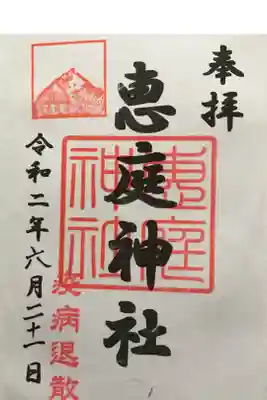 奉拝
恵庭神社
恵庭神社
令和二年六月二十一日
疫病退散